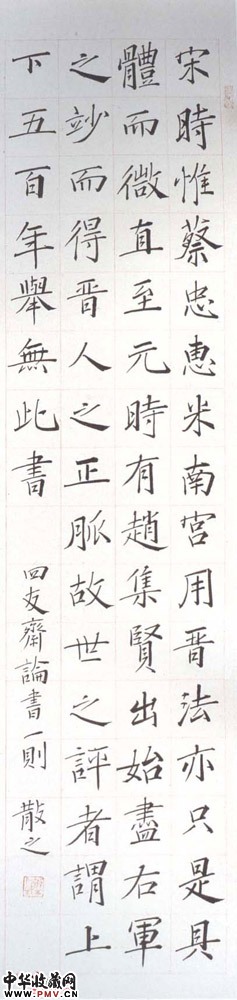 宋時惟蔡忠惠米南宮用晉法亦只是具
體而微直至元時有趙集賢出始盡右軍
之妙而得晉人之正脈故世之評者謂上
下五百年舉無此書
四友齋論書一則 散之
中华收藏网
www.PMV.cn